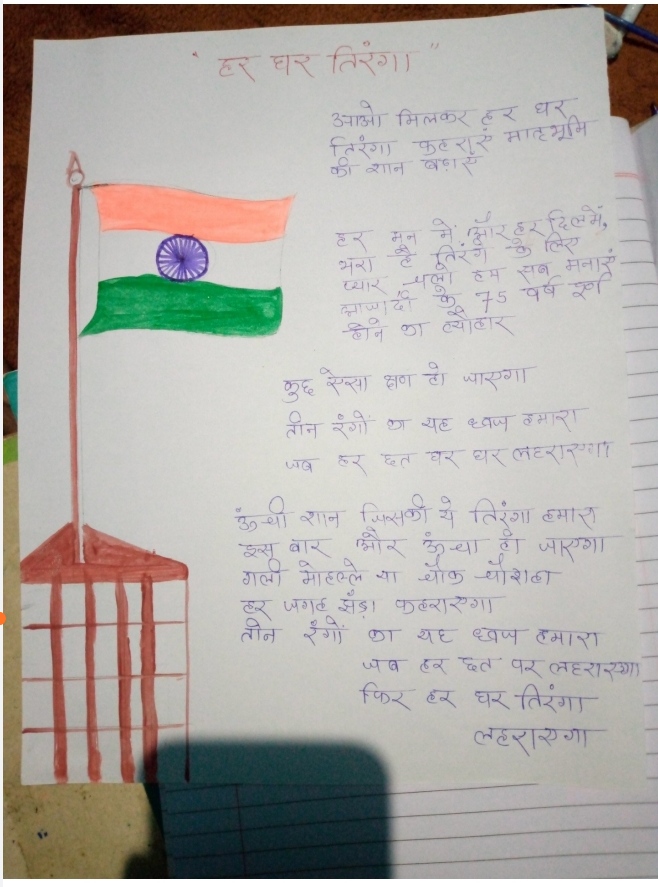 " हर घर तिरंगा "
आओ मिलकर हर घर
तिरंगा फहराएं मातृभूमि
की शान बढ़ाएं
हर मन में और हर दिल में,
भरा है तिरंगे के लिए
प्यार चलो हम सब मनाएं
आजादी के 75 वर्ष पूर्ण
होने का त्यौहार
कुछ ऐसा क्षण हो जाएगा
तीन रंगों का यह ध्वज हमारा
जब हर छत घर घर लहराएगा
ऊंची शान जिसकी ये तिरंगा हमारा
इस बार और ऊंचा हो जाएगा
गली मोहल्ले या चौक चौराहा
हर जगह झंडा फहराएगा
तीन रंगों का यह ध्वज हमारा
जब हर छत पर लहराएगा
फिर हर घर तिरंगा
लहराएगा